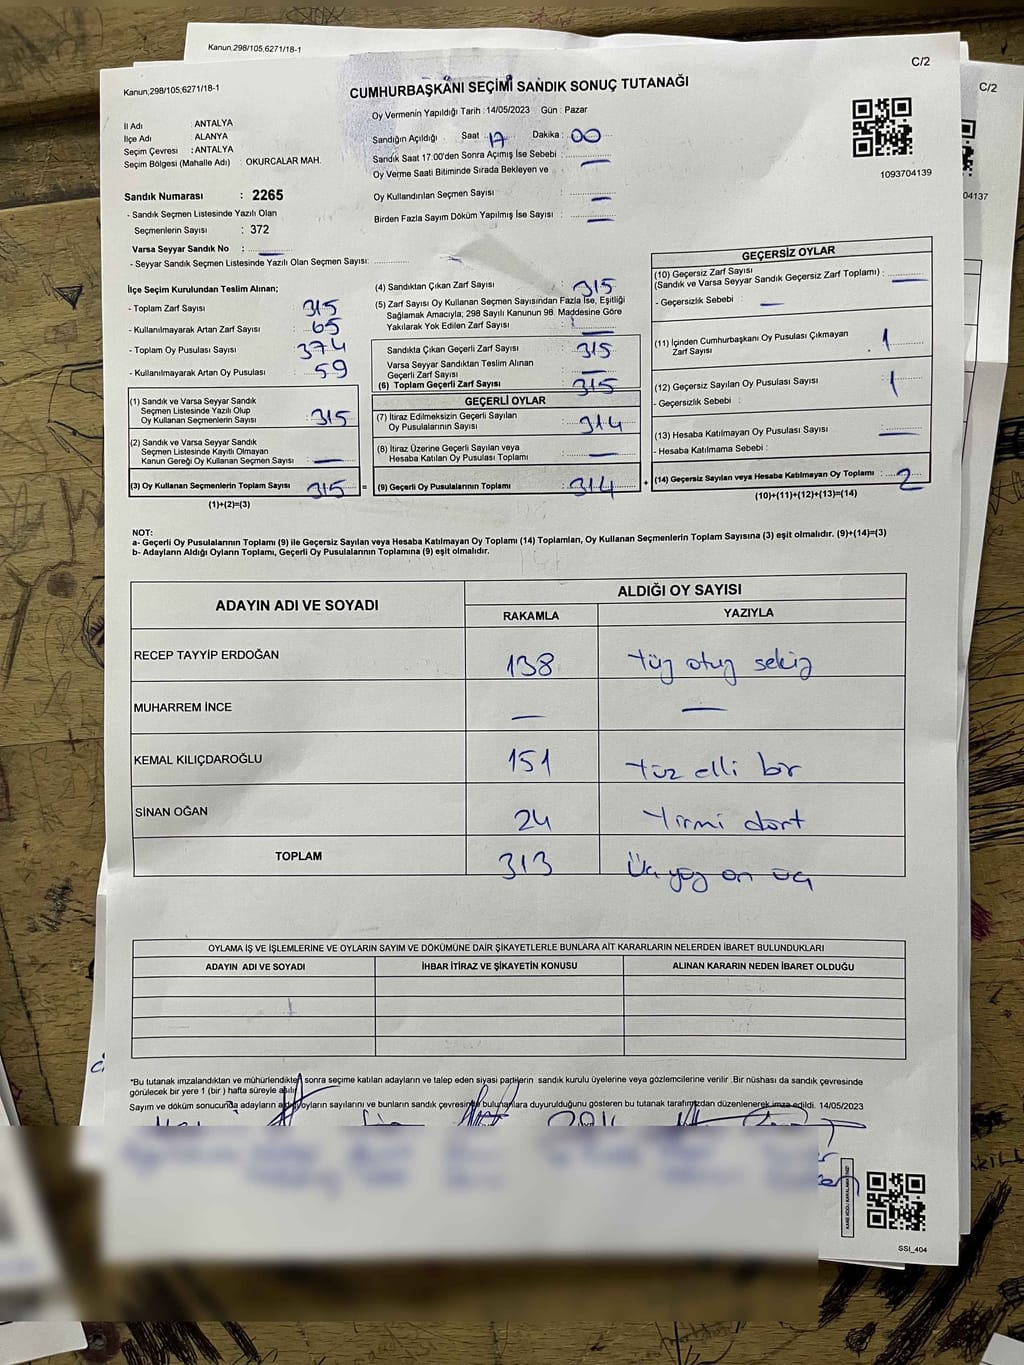 Kanun,298/105,6271/18-1
C/2
Kanun,298/105,6271/18-1
C/2
CUMHURBAŞKANI SEÇİMİ SANDIK SONUÇ TUTANAĞI
Oy Vermenin Yapıldığı Tarih : 14/05/2023 Gün : Pazar
İl Adı : ANTALYA
İlçe Adı : ALANYA
Seçim Çevresi : ANTALYA
Seçim Bölgesi (Mahalle Adı) : OKURCALAR MAH.
Sandığın Açıldığı Saat : 17 Dakika : 00
Sandık Saat 17:00'den Sonra Açımış İse Sebebi : —
Oy Verme Saati Bitiminde Sırada Bekleyen ve
Oy Kullandırılan Seçmen Sayısı : —
Birden Fazla Sayım Döküm Yapılmış İse Sayısı : —
1093704139
04137
Sandık Numarası : 2265
- Sandık Seçmen Listesinde Yazılı Olan
Seçmenlerin Sayısı : 372
Varsa Seyyar Sandık No : —
- Seyyar Sandık Seçmen Listesinde Yazılı Olan Seçmen Sayısı: —
İlçe Seçim Kurulundan Teslim Alınan;
- Toplam Zarf Sayısı : 315
- Kullanılmayarak Artan Zarf Sayısı : 65
- Toplam Oy Pusulası Sayısı : 374
- Kullanılmayarak Artan Oy Pusulası : 59
(1) Sandık ve Varsa Seyyar Sandık
Seçmen Listesinde Yazılı Olup
Oy Kullanan Seçmenlerin Sayısı : 315
(2) Sandık ve Varsa Seyyar Sandık
Seçmen Listesinde Kayıtlı Olmayan
Kanun Gereği Oy Kullanan Seçmen Sayısı : —
(3) Oy Kullanan Seçmenlerin Toplam Sayısı : 315
(1)+(2)=(3)
(4) Sandıktan Çıkan Zarf Sayısı : 315
(5) Zarf Sayısı Oy Kullanan Seçmen Sayısından Fazla İse, Eşitliği
Sağlamak Amacıyla; 298 Sayılı Kanunun 98. Maddesine Göre
Yakılarak Yok Edilen Zarf Sayısı : —
Sandıkta Çıkan Geçerli Zarf Sayısı : 315
Varsa Seyyar Sandıktan Teslim Alınan
Geçerli Zarf Sayısı : —
(6) Toplam Geçerli Zarf Sayısı : 315
GEÇERLİ OYLAR
(7) İtiraz Edilmeksizin Geçerli Sayılan
Oy Pusulalarının Sayısı : 314
(8) İtiraz Üzerine Geçerli Sayılan veya
Hesaba Katılan Oy Pusulası Toplamı : —
= (9) Geçerli Oy Pusulalarının Toplamı : 314 +
GEÇERSİZ OYLAR
(10) Geçersiz Zarf Sayısı
(Sandık ve Varsa Seyyar Sandık Geçersiz Zarf Toplamı) : —
- Geçersizlik Sebebi : —
(11) İçinden Cumhurbaşkanı Oy Pusulası Çıkmayan
Zarf Sayısı : 1
(12) Geçersiz Sayılan Oy Pusulası Sayısı : 1
- Geçersizlik Sebebi :
(13) Hesaba Katılmayan Oy Pusulası Sayısı : —
- Hesaba Katılmama Sebebi :
(14) Geçersiz Sayılan veya Hesaba Katılmayan Oy Toplamı : 2
(10)+(11)+(12)+(13)=(14)
NOT:
a- Geçerli Oy Pusulalarının Toplamı (9) ile Geçersiz Sayılan veya Hesaba Katılmayan Oy Toplamı (14) Toplamları, Oy Kullanan Seçmenlerin Toplam Sayısına (3) eşit olmalıdır. (9)+(14)=(3)
b- Adayların Aldığı Oyların Toplamı, Geçerli Oy Pusulalarının Toplamına (9) eşit olmalıdır.
ADAYIN ADI VE SOYADI ALDIĞI OY SAYISI
RAKAMLA YAZIYLA
RECEP TAYYİP ERDOĞAN 138 Yüz otuz sekiz
MUHARREM İNCE — —
KEMAL KILIÇDAROĞLU 151 Yüz elli bir
SİNAN OĞAN 24 Yirmi dört
TOPLAM 313 Üç yüz on üç
OYLAMA İŞ VE İŞLEMLERİNE VE OYLARIN SAYIM VE DÖKÜMÜNE DAİR ŞİKAYETLERLE BUNLARA AİT KARARLARIN NELERDEN İBARET BULUNDUKLARI
ADAYIN ADI VE SOYADI İHBAR İTİRAZ VE ŞİKAYETİN KONUSU ALINAN KARARIN NEDEN İBARET OLDUĞU
*Bu tutanak imzalandıktan ve mühürlendikten sonra seçime katılan adayların ve talep eden siyasi partilerin sandık kurulu üyelerine veya gözlemcilerine verilir .Bir nüshası da sandık çevresinde
görülecek bir yere 1 (bir ) hafta süreyle asılır.
Sayım ve döküm sonucunda adayların aldığı oyların sayılarını ve bunların sandık çevresinde bulunanlara duyurulduğunu gösteren bu tutanak tarafımızdan düzenlenerek imza edildi. 14/05/2023
SSI_404